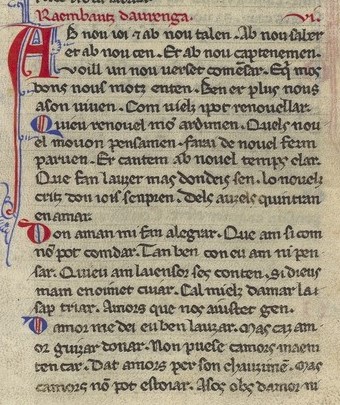 Raembautz daurenga. vi.
AB nou ioi ⁊ ab nou talen. Ab nou saber
et ab nou cen. Et ab nou captenemen.
voill un nou uerset comēsar. E q̄ mos
bons nous motz enten. Ben er plus nous
a son uiuen. Com uielz i pot renouellar.
Quieu renouel mō ardimen. Quels nou
el mouon pensamen. farai de nouel ferm
paruen. Er cantem ab nouel temps clar.
Que fan lauzer mas dondeis sen. Lo nouelz
critz don iois senpren. Dels auzels quintran
en amar.
Don aman mi fan alegrar. Que am si com
nō pot comdar. Tan ben con eu am ni pen
sar. Quieu am laiensor ses conten. si dieus
mam en oimet cuiar. Cal mielz damar la i
sap triar. Amors que nos aiustet gen.
Damor me dei eu ben lauzar. Mas caz am
or guizardonar. Non puesc camors maen
ten car. Dat amors per son chauzimē. Mas
camors nō pot esboiar. A sos obs damor ni